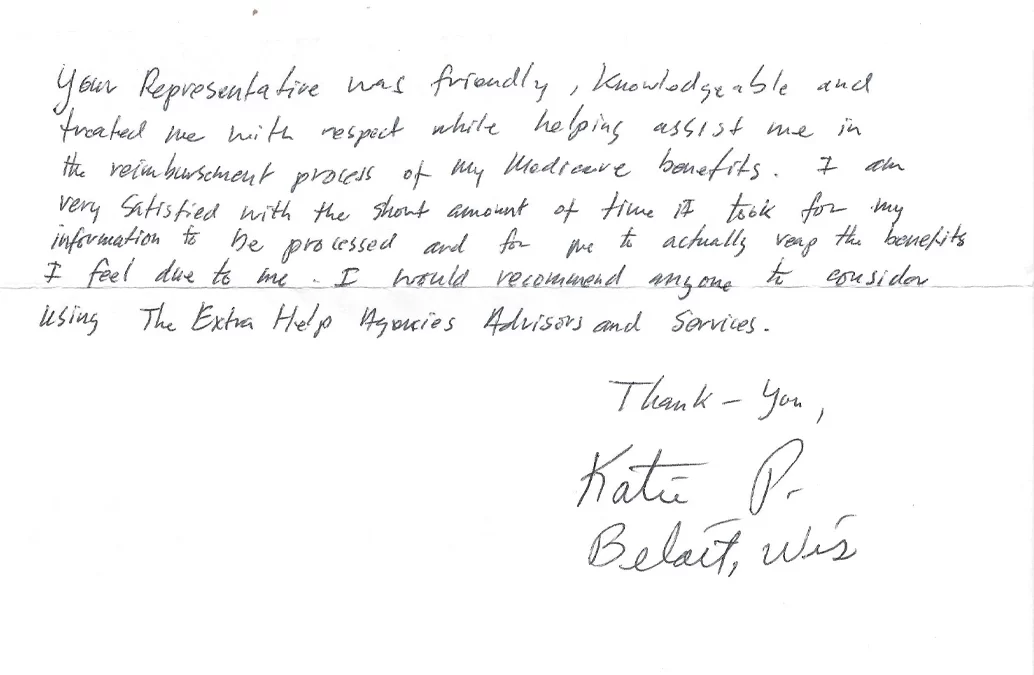 Your Representative was friendly, Knowledgeable and
treated me with respect while helping assist me in
the reimbursement process of my Medicare benefits. I am
very Satisfied with the short amount of time it took for my
information to be processed and for me to actually reap the benefits
I feel due to me. I would recommend anyone to consider
using The Extra Help Agencies Advisors and Services.
Thank-You,
Katie P.
Beloit, Wis